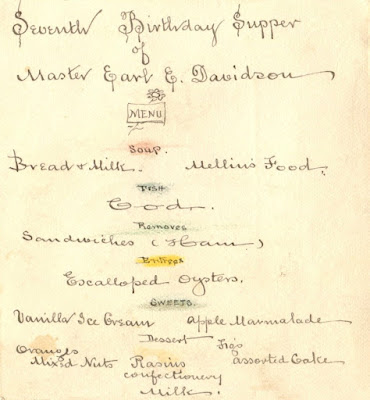 Seventh Birthday Supper
of
Master Earl E. Davidson
MENU
Soup.
Bread & Milk. Mellin's Food.
Fish
Cod.
Removes
Sandwiches (Ham)
Entrees
Escalloped Oysters.
Sweets
Vanilla Ice Cream Apple Marmalade
Dessert
Oranges Figs
Mixed Nuts Rasins assorted Cake
confectionery
Milk.